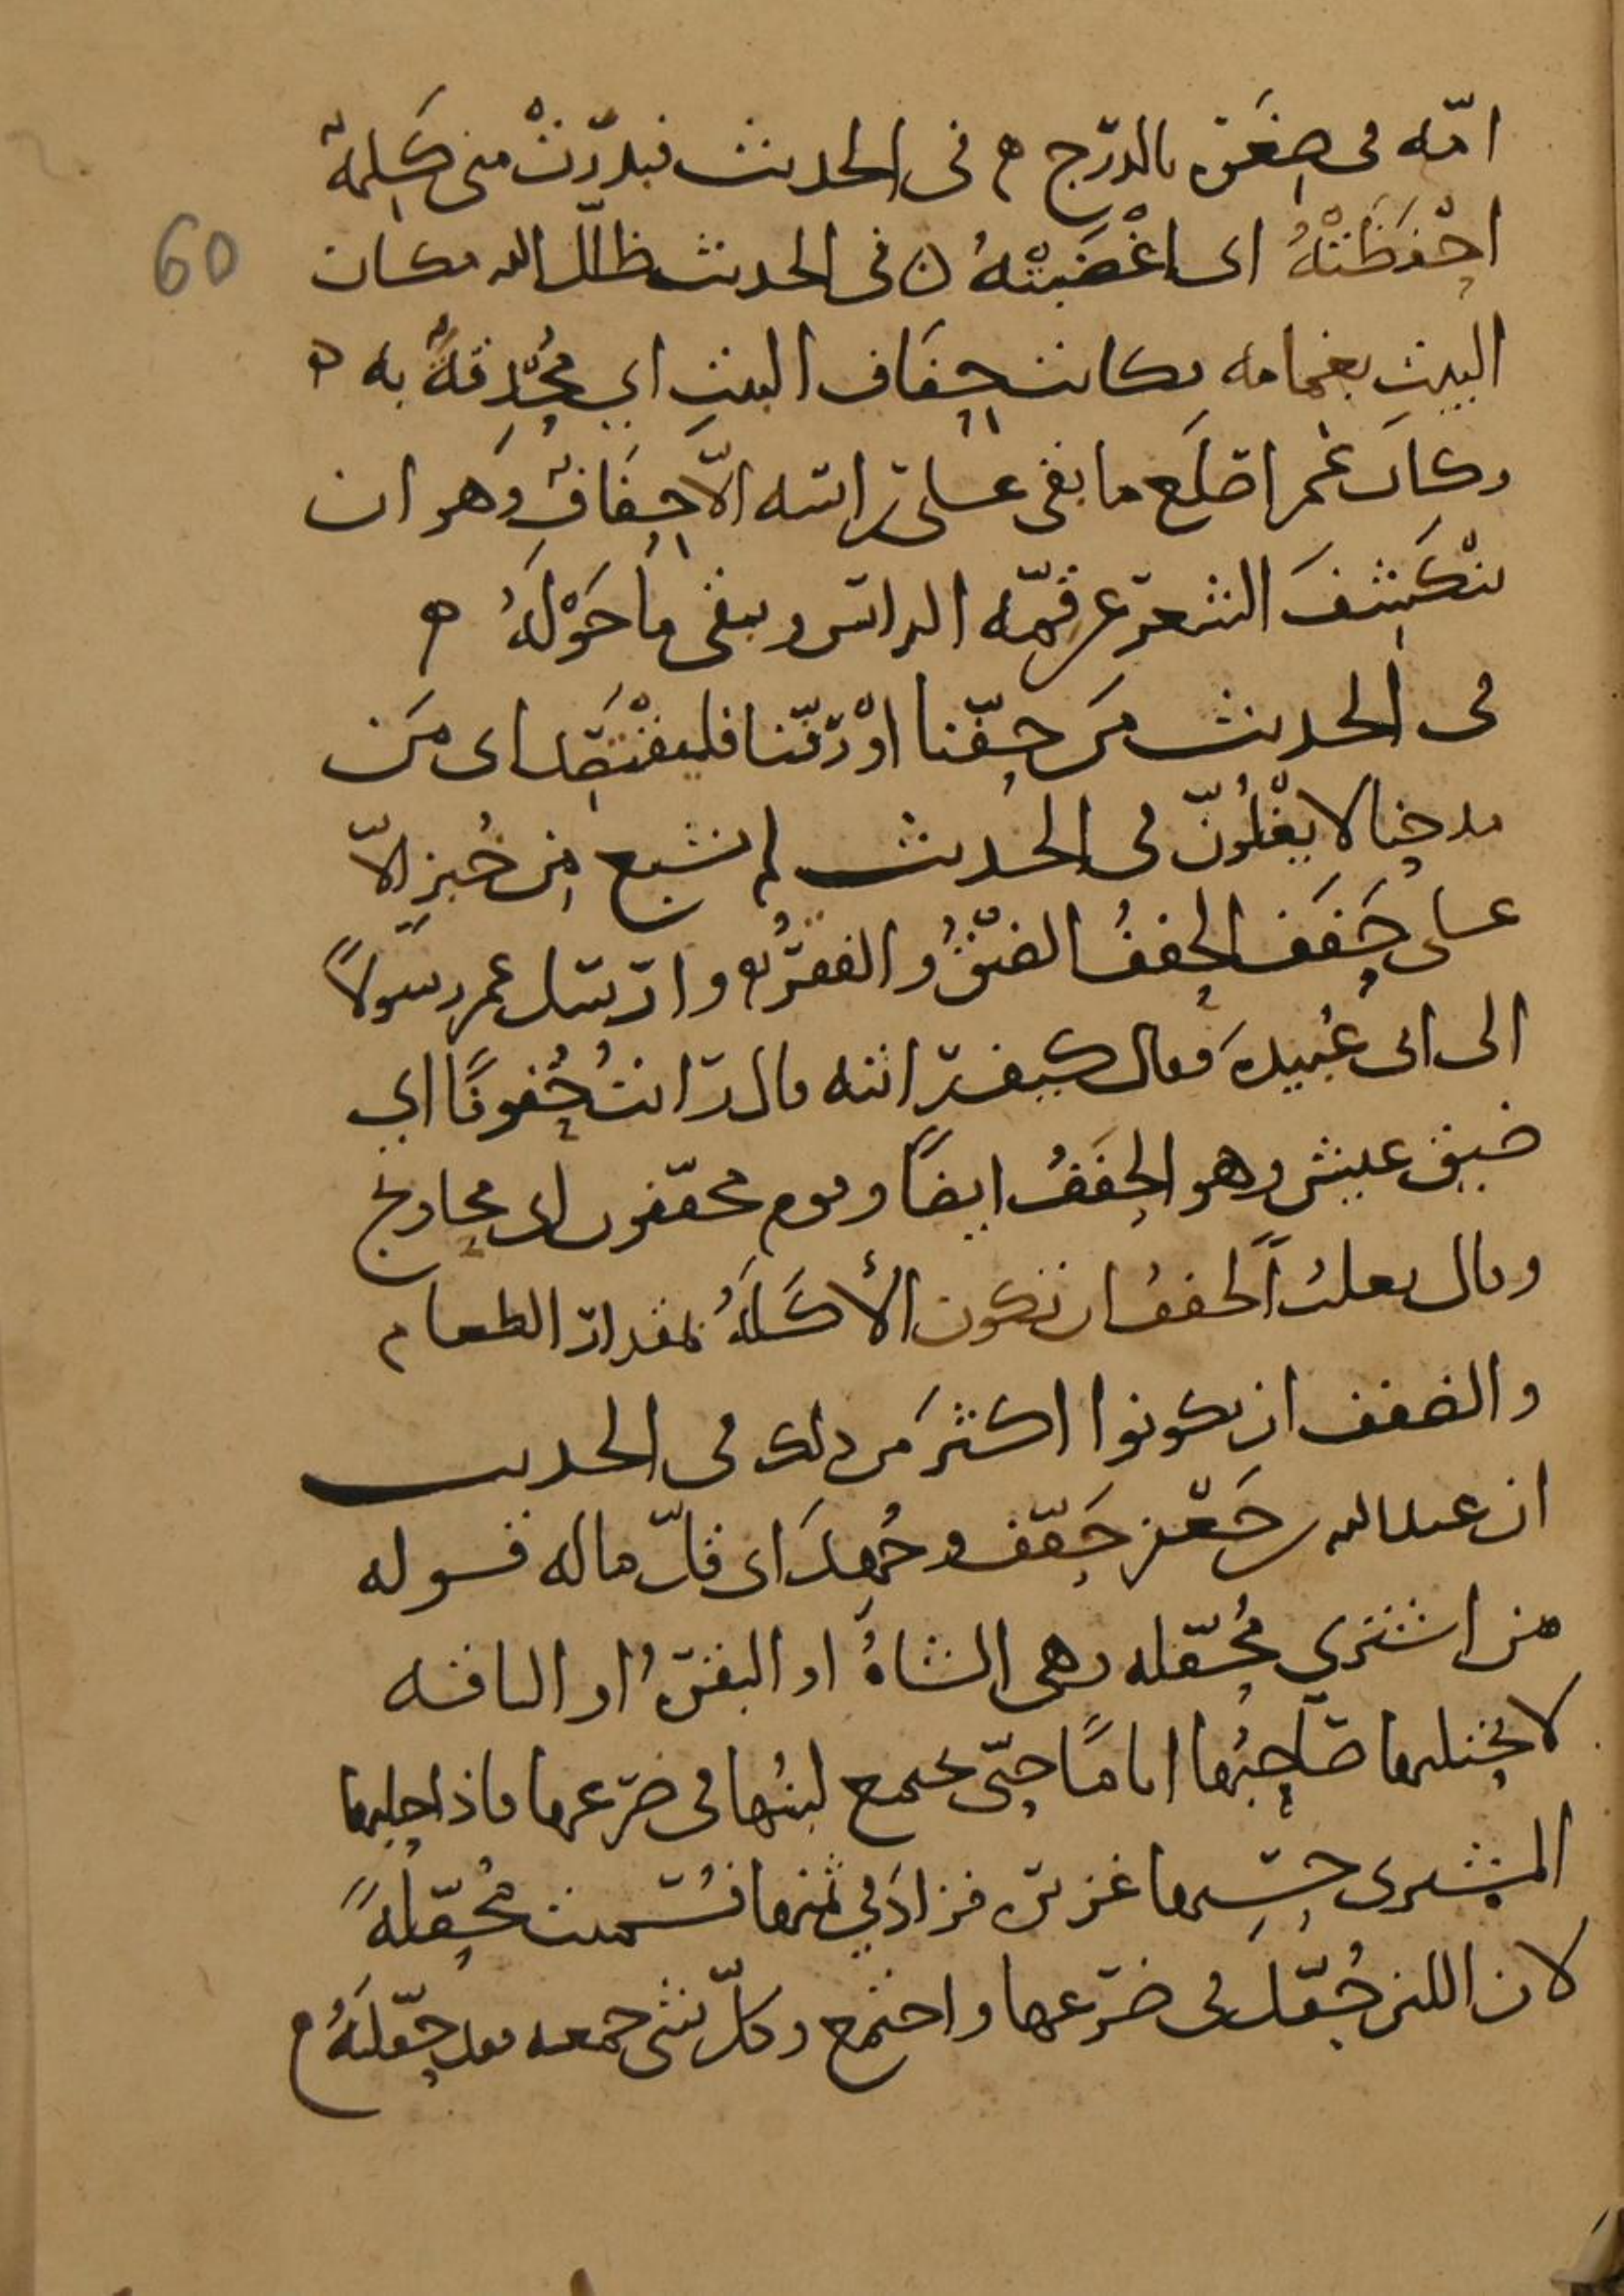 امّه فى صِغَره بالدرج ه فى الحديث فبدَرَتْ منى كَلِمةٌ
احْفَظَتْهُ اى اغْضَبَتْهُ ه فى الحديث ظلّل الله مكان
60
البيت بغمامه فكانت حِفَاف البيتِ اي مُحْدِقةً به ه
وكان عُمر اصلَع ما بقى على راسه الّا حِفَافٌ وَهو ان
ينْكَشِفَ الشعر عن قمّه الراس ويبقى ما حَوْلَهُ ه
فى الحديث مَن حفّنا اوْ رفّنا فليقْتَصِد اى مَن
مدحنا لا يغْلُونّ فى الحديث لم يشبع من خُبزٍ الّا
على حَفَفٍ الحففُ الضيْقُ والفقرُ ه وارسل عمر رسولًا
الى ابى عُبيده فقال كيف رايته قال رايتُ حُفوفًا اي
ضيق عيش وهو الحَفَفُ ايضًا وقوم محفّفون اى محاويج
وقال ثعلبُ الحففُ ان تكون الأكَلَهُ بمقدار الطعام
والضفف ان يكونوا اكثرَ من ذلك فى الحديث
ان عبدالله بن جَعْفر حَفّف وجُهِدَ اى قلّ ماله قوله
من اشتري مُحفّله وهى الشاةُ او البقرهُ او الناقه
لا يحتلبها صَاحِبُها اياما حتّى يجتمع لبنُها فى ضرعها فاذا حلبها
المشترى حسبها غزيره فزادَ في ثمنها فسُميت مُحفّلَةً
لان اللبن حُفّلَ فى ضرعها واجتمع وكلّ شى جمعته فقد حفّلتَهُ ه